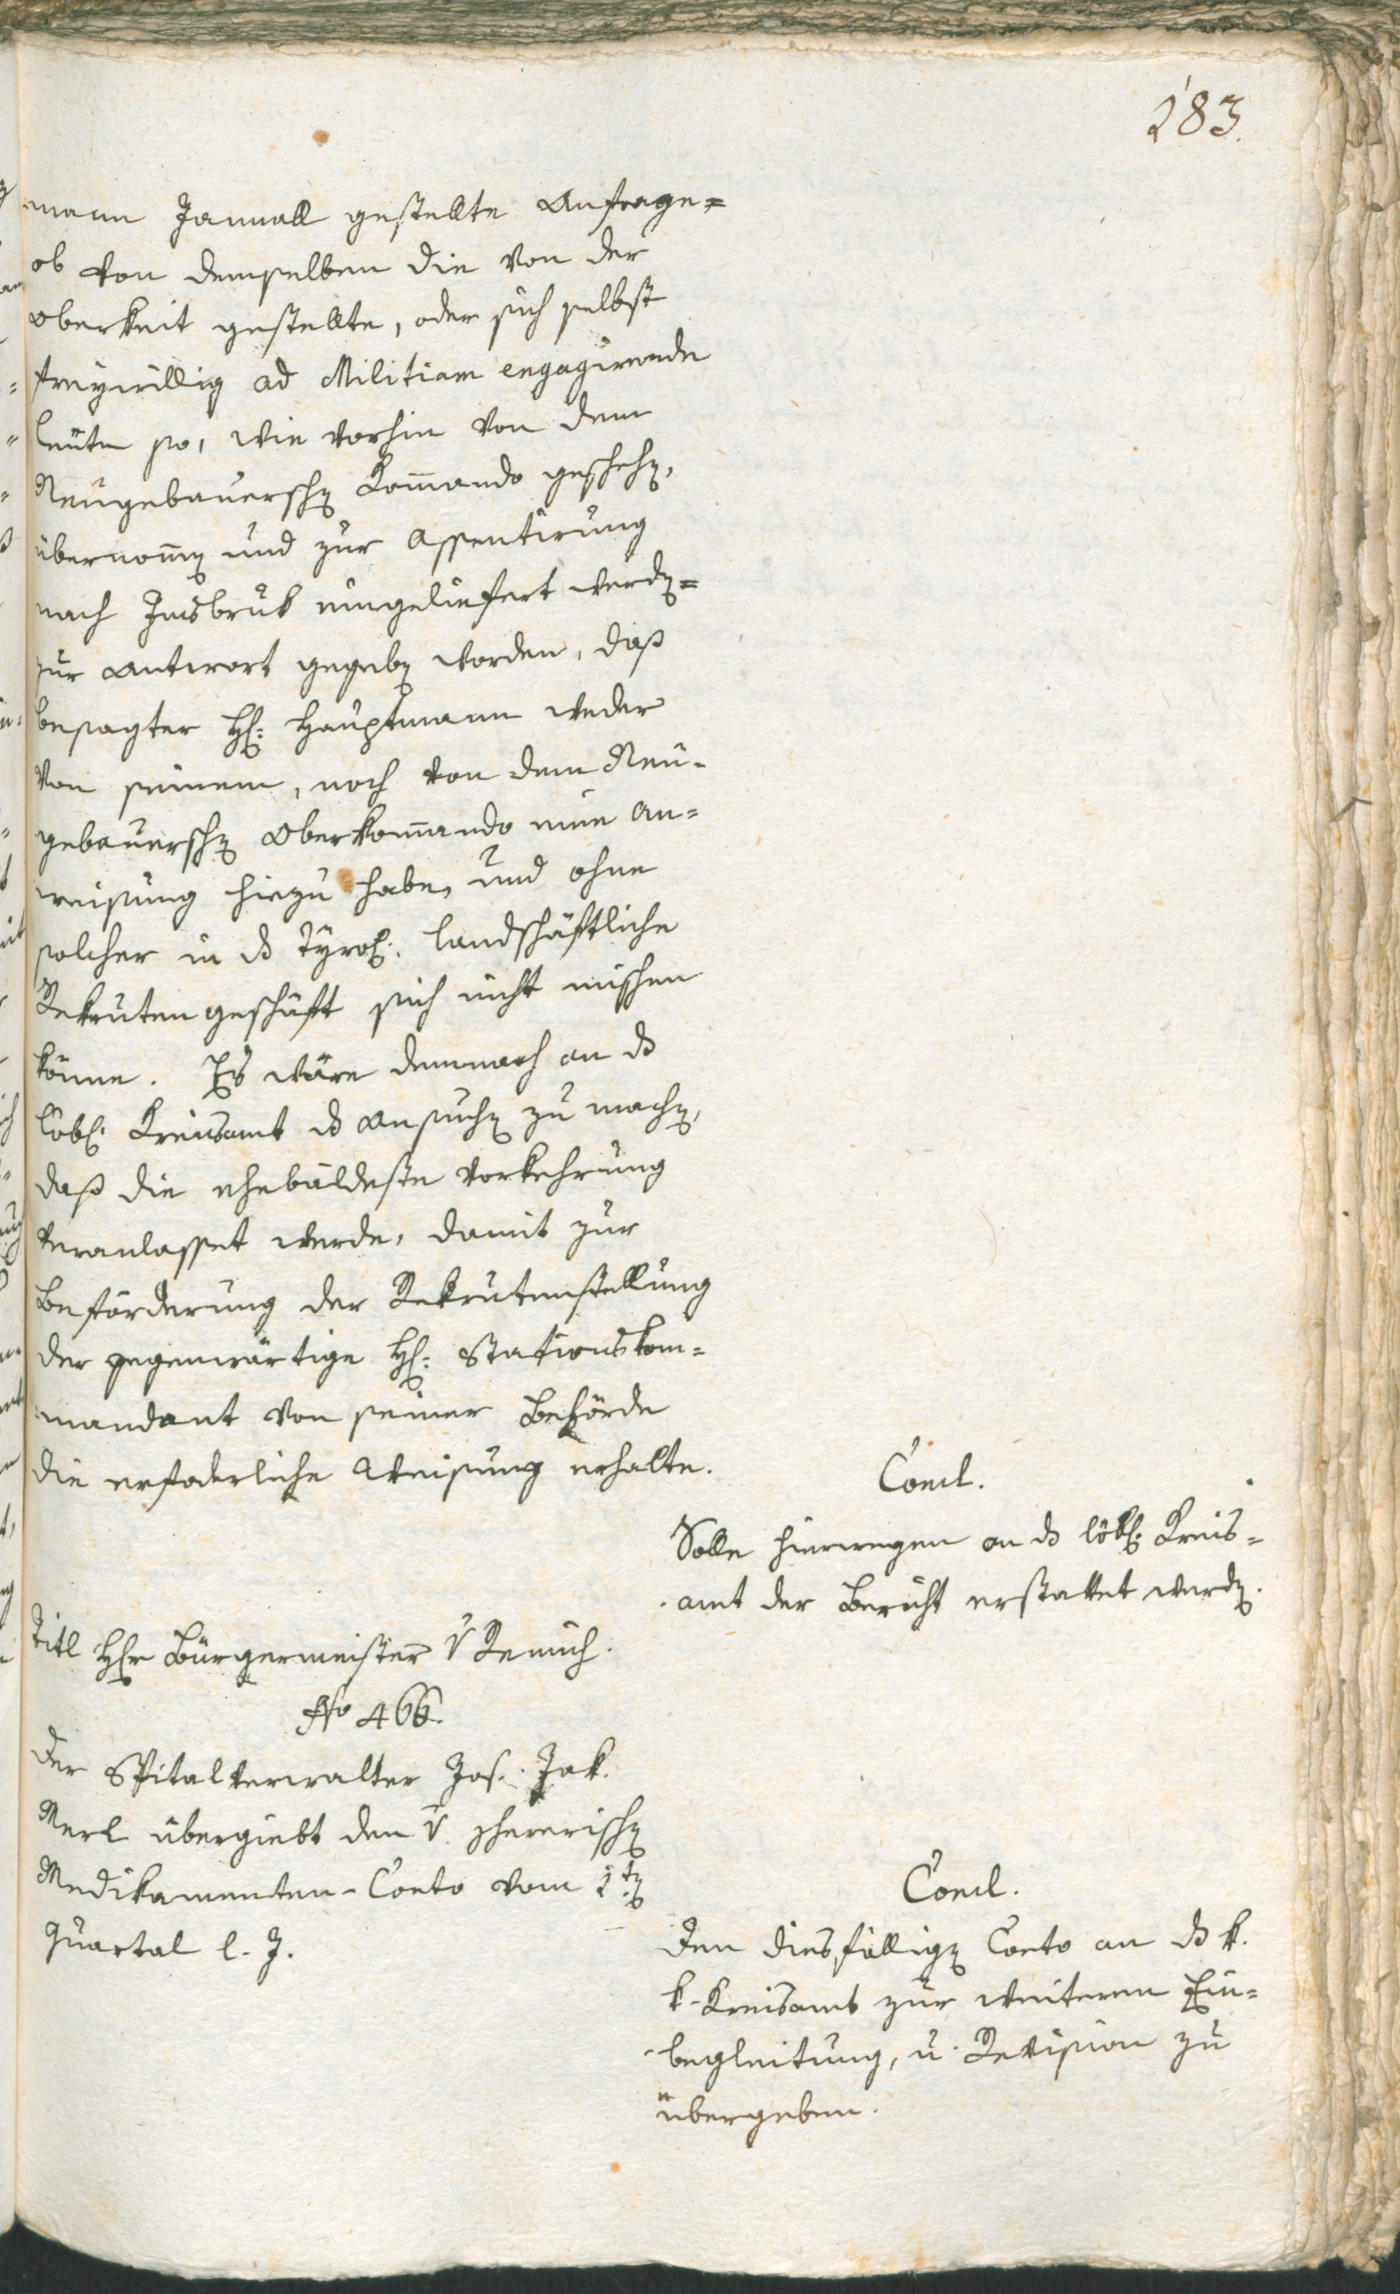 283.
mann Jannall gestellte Anfrage=
ob von demselben die von der
Oberkeit gestellte, oder sich selbst
freywillig ad Militiam engagirende
Leute so, wie vorhin von dem
Neugebauersch Komando gescheh,
übernom und zur Assentirung
nach Insbruk eingeliefert werd=
zur Antwort gegeb worden, daß
besagter H: Hauptmann weder
von seinem, noch von dem Neu-
gebauersch Oberkomando eine An=
weisung hiezu habe, und ohne
solcher in ds Tyrol: Landschäftliche
Rekrutengeschäft sich nicht mischen
könne. Es wäre demnach an ds
löbl: Kreisamt ds Ansuch zu mach,
daß die ehebäldeste Vorkehrung
veranlasset werde, damit zur
Beförderung der Rekrutenstellung
der gegenwärtige H: Stationskom=
mandant von seiner Behörde
die erfoderliche Weisung erhalte.
Concl.
Solle hierwegen an ds löbl: Kreis=
amt der Bericht erstattet werd.
Titl Hr Bürgermeister v Remich.
No 466.
Der Spitalverwalter Jos. Jak.
Merl übergiebt den v. Ehrerisch
Medikamenten-Conto vom 2t
Quartal l. J.
Concl.
Den diesfällig Conto an ds k.
k. Kreisamt zur weiteren Ein=
begleitung, u. Revision zu
übergeben.